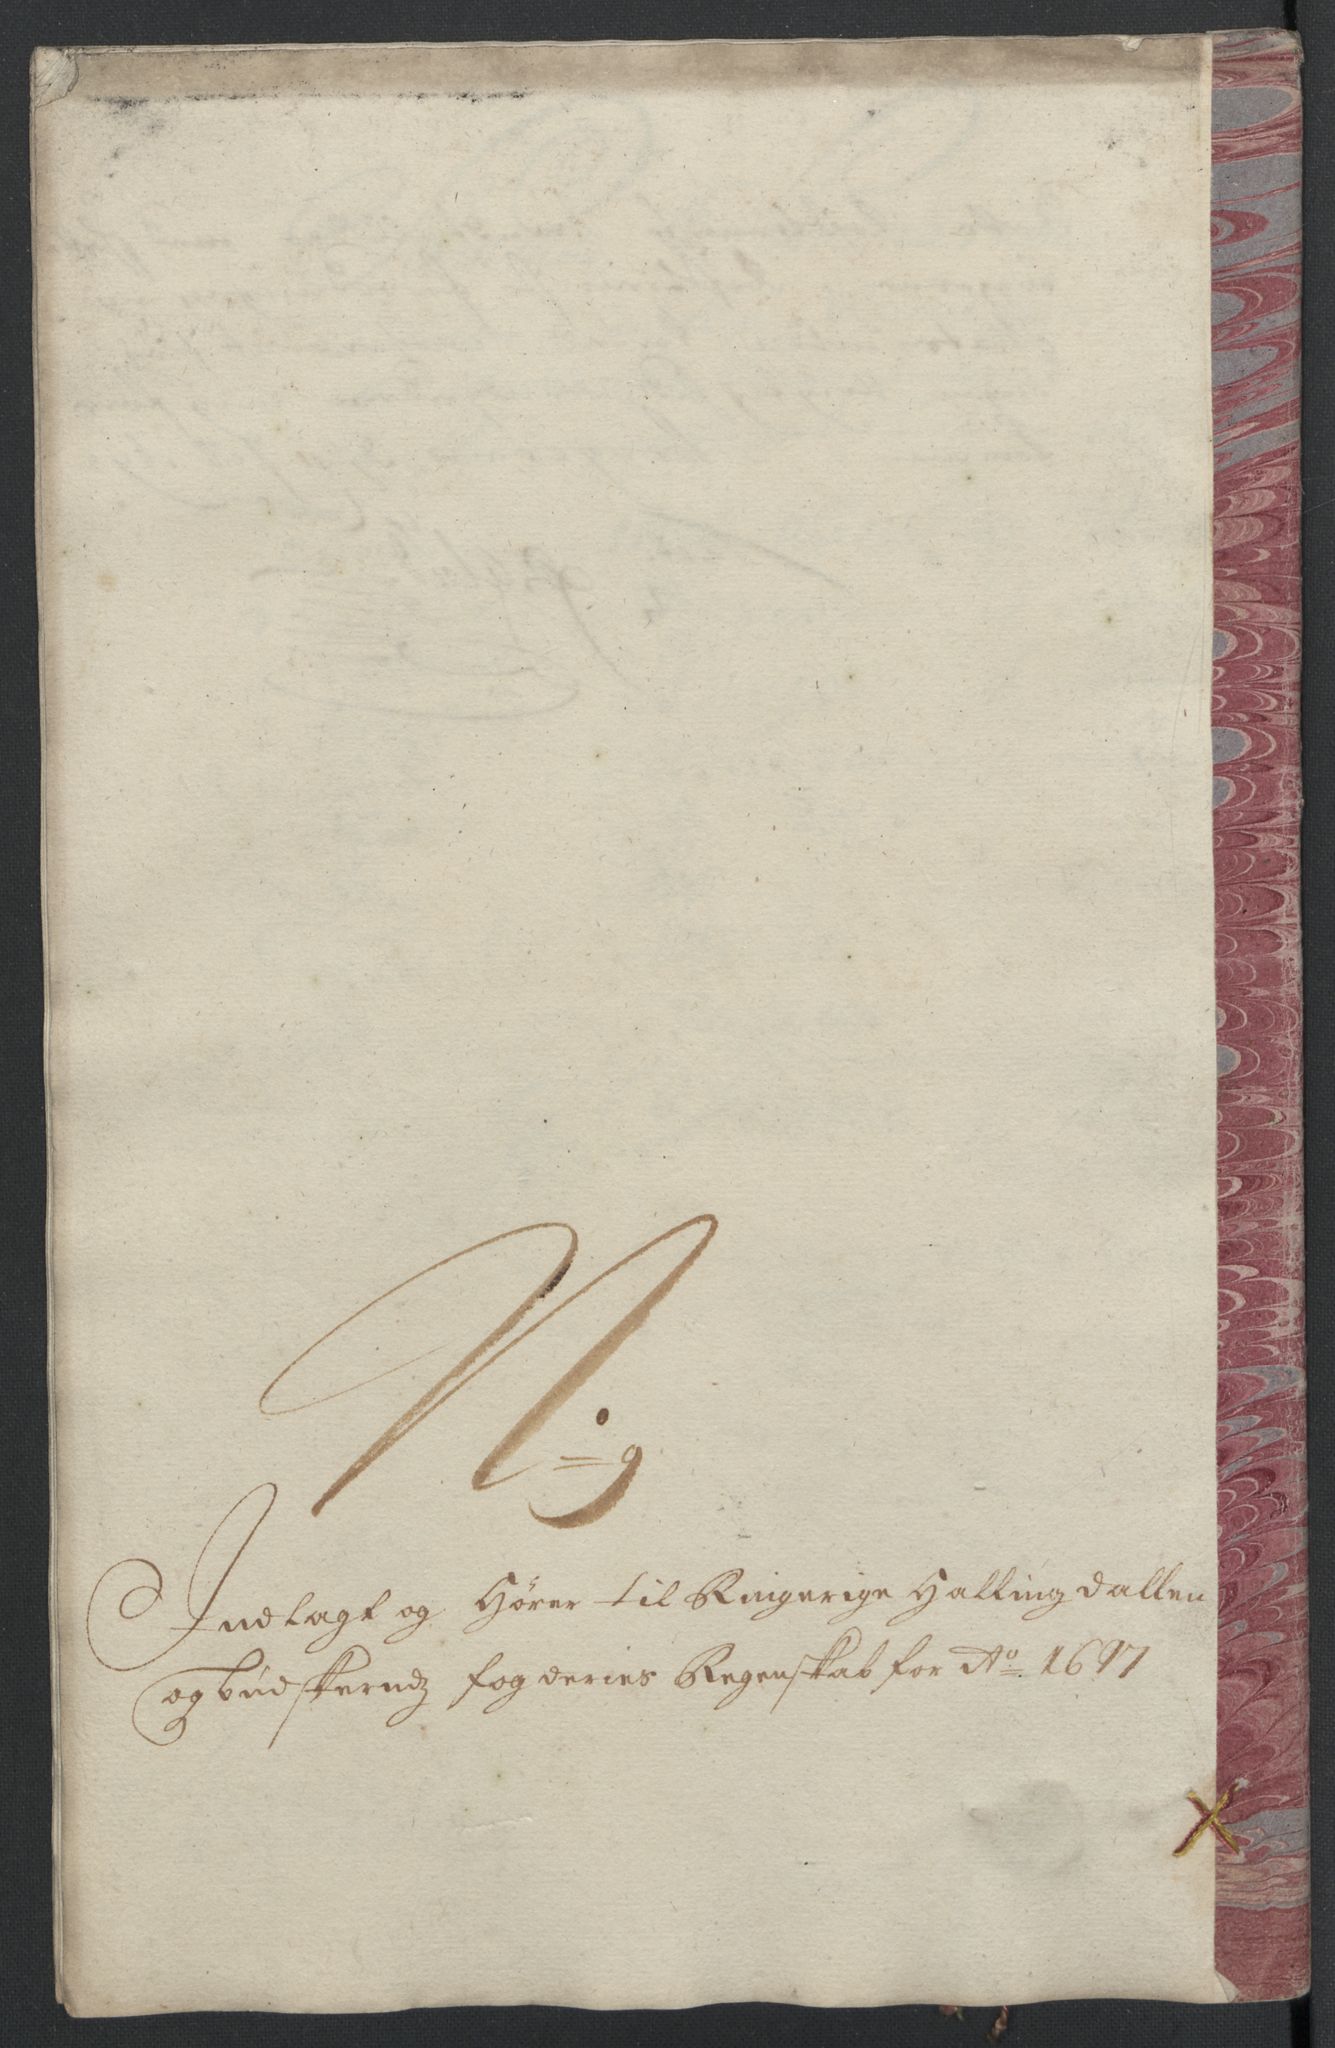 No 9
Indlagt og Hører til Ringerige Hallingdallen
og budskeruds fogderies Regenskab for Ao. 1697